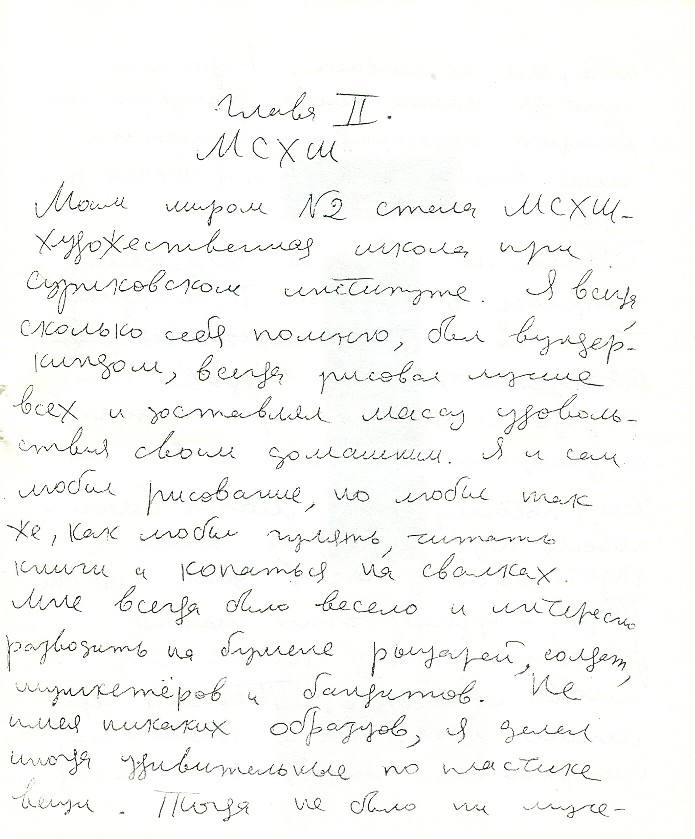 Глава II.
МСХШ
Моим миром №2 стала МСХШ-
художественная школа при
суриковском институте. Я всегда,
сколько себя помню, был вундер-
киндом, всегда рисовал лучше
всех и доставлял массу удоволь-
ствия своим домашним. Я и сам
любил рисование, но любил так
же, как любил гулять, читать
книги и копаться на свалках.
Мне всегда было весело и интересно
разводить на бумаге рыцарей, солдат,
мушкетёров и бандитов. Не
имея никаких образцов, я делал
иногда удивительные по пластике
вещи. Тогда не было ни муче-